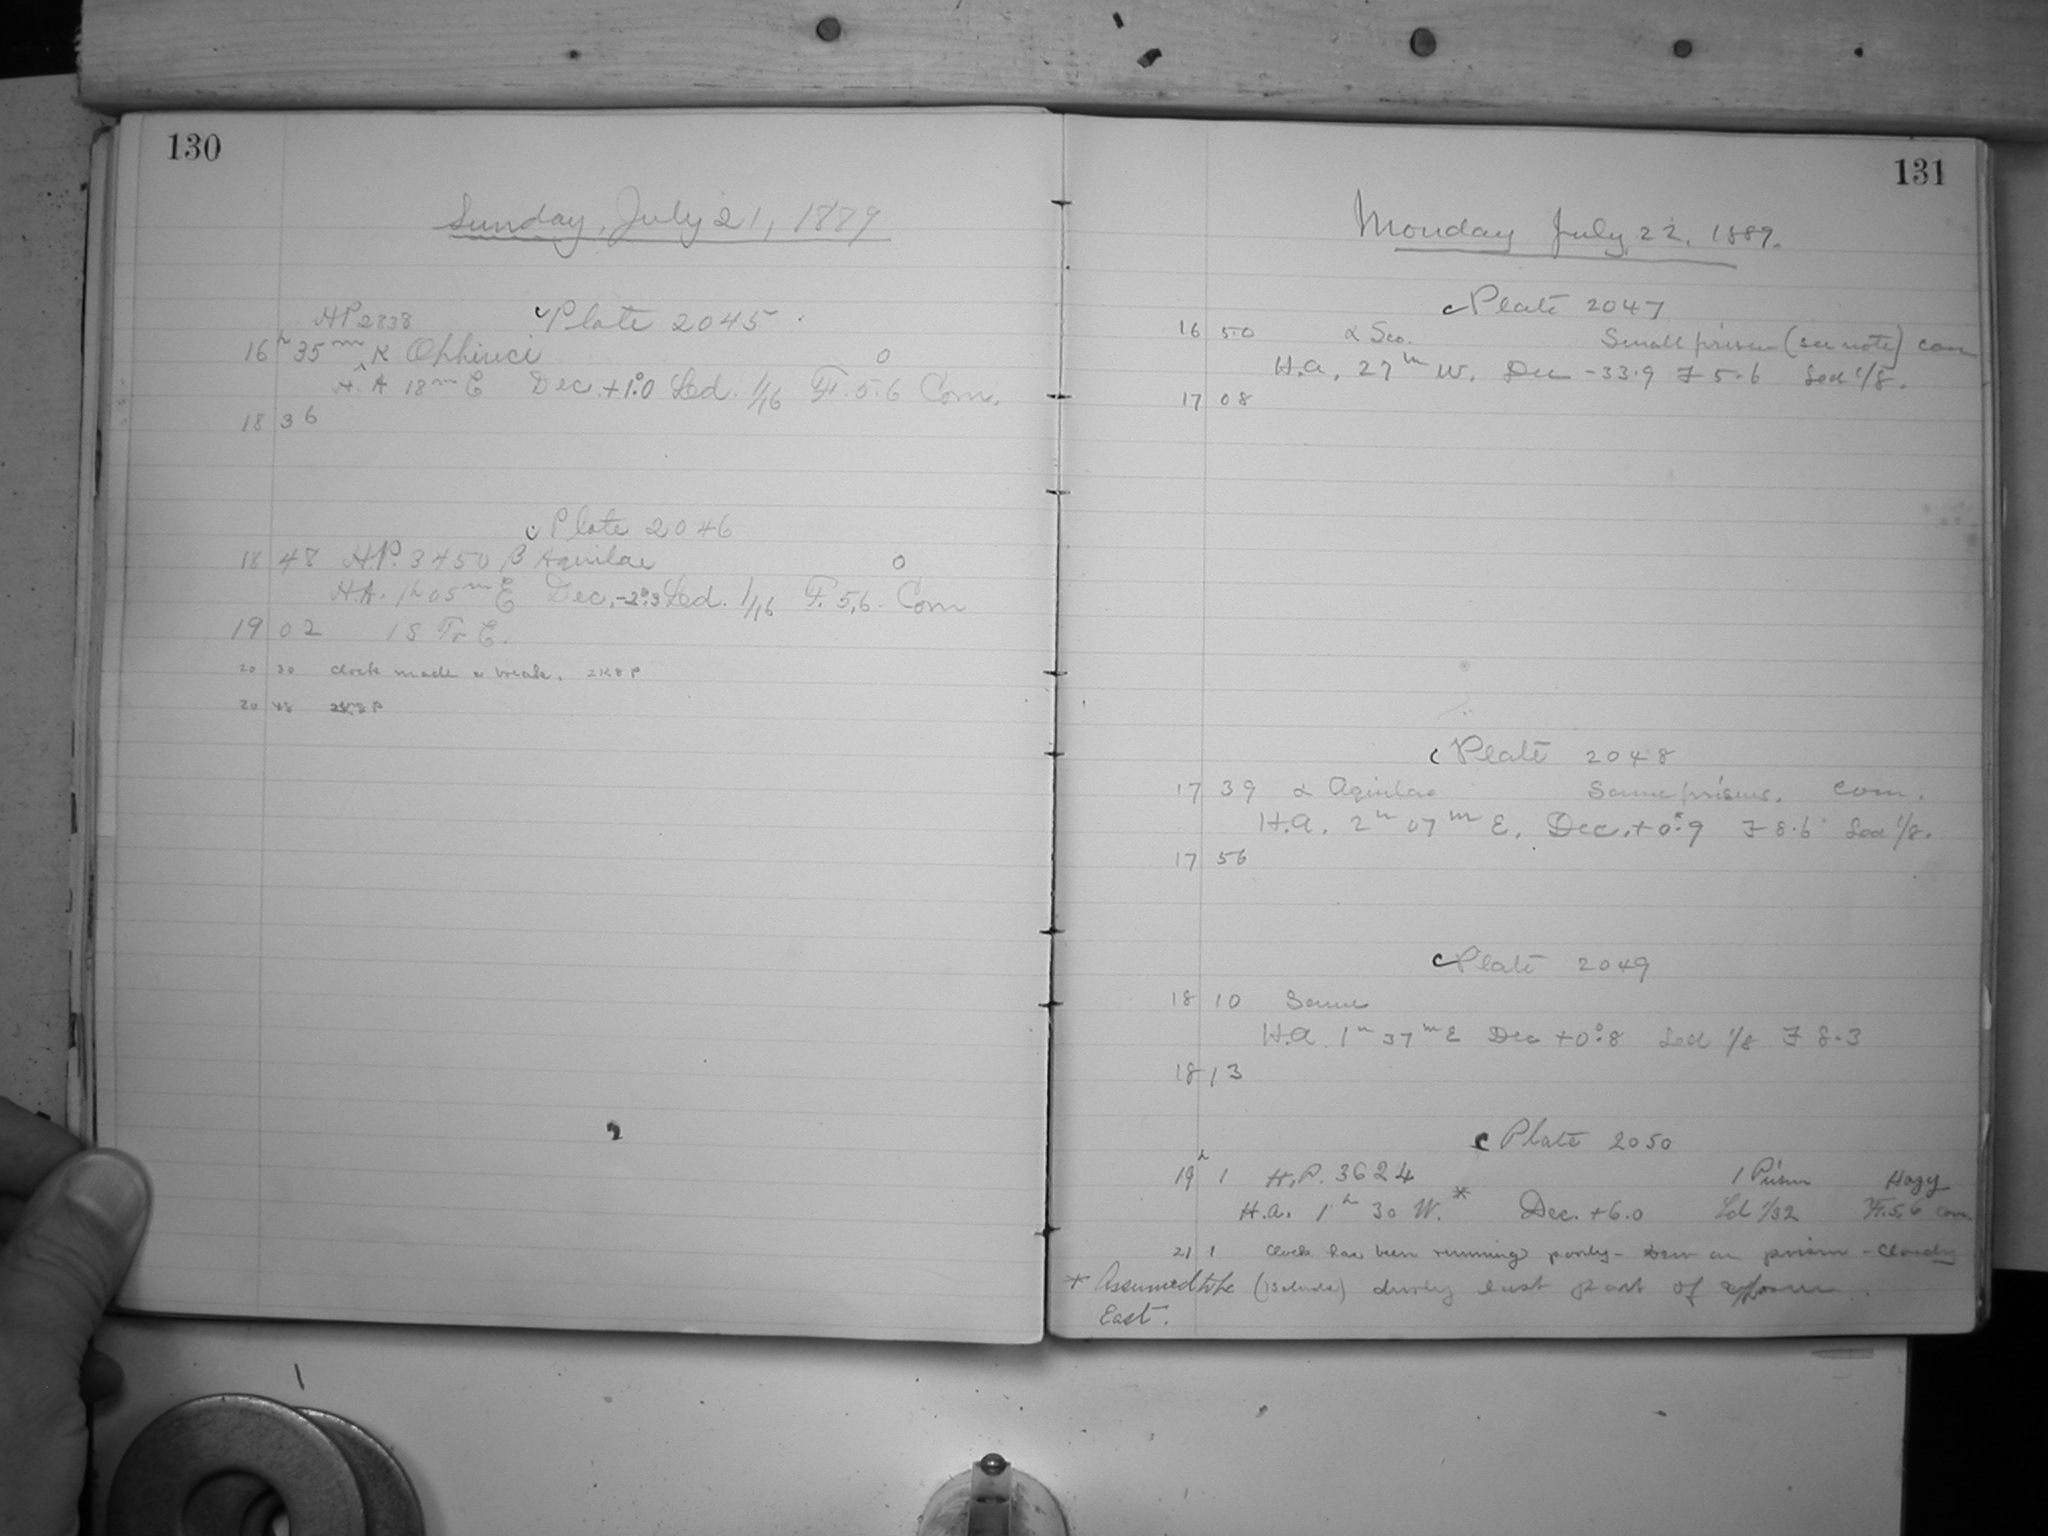 130
Sunday, July 21, 1889
HP 2838 c Plate 2045
16 h 35 m K Ophiuci 0
H.A 18 m E Dec. +1°.0 Led. 1/16 F. 5.6 Com.
18 36
c Plate 2046
18 48 H.P. 3450 β Aquilae 0
H.A. 1h 05 m E Dec. -2°.3 Led. 1/16 F. 5.6. Com
19 02 15 Tr E.
20 30 clock made a break.
20 48
131
Monday July 22, 1889.
c Plate 2047
16 50 α Sco. Small prism (see note) com
H.a. 27 m W. Dec -33.9 F 5.6 Led 1/8.
17 08
c Plate 2048
17 39 α Aquilae Same prisms. com.
H.a. 2 h 07 m E. Dec. +0°.9 F 8.6 Led 1/8.
17 56
c Plate 2049
18 10 Same
H.a. 1 h 37 m E Dec +0°.8 Led 1/8 F 8.3
18 13
c Plate 2050
19 h 1 H.P. 3624 1 Prism Hazy
H.a. 1 h 30 W. * Dec. +6.0 Ld 1/32 F. 5.6 com.
21 1 Clock has been running poorly - Dew on prism - Cloudy
* Assumed to be during last part of exposure.
East.